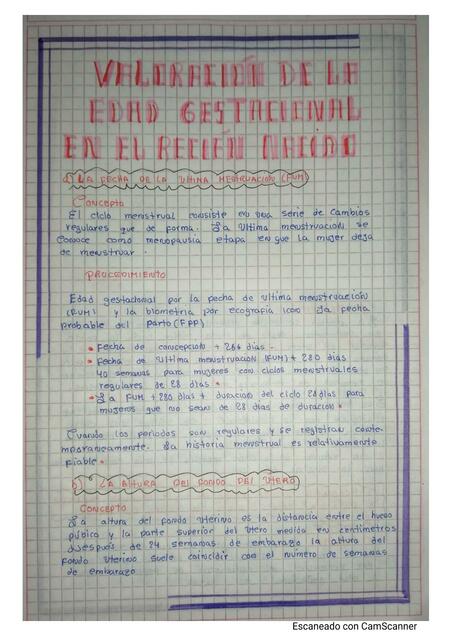 VALORACIÓN DE LA
EDAD GESTACIONAL
EN EL RECIÉN NACIDO
a) LA FECHA DE LA ULTIMA MESTRUACION (FUM)
Concepto
El ciclo menstrual consiste en una serie de cambios
regulares que de forma. La ultima menstruacion se
conoce como menopausia etapa en que la mujer deja
de menstruar.
PROCEDIMIENTO
Edad gestacional por la fecha de ultima menstruación
(FUM) y la biometria por ecografia (con la fecha
probable del Parto (FPP)
• Fecha de concepcion + 266 dias.
• Fecha de ultima menstruación (FUM) + 280 dias
40 semanas para mujeres con ciclos menstruales
regulares de 28 dias.
• La FUM + 280 dias + duracion del ciclo 28 dias para
mujeres que no sean de 28 dias de duracion.
Cuando los periodos son regulares y se registran conte-
mporaneamente. La historia menstrual es relativamente
fiable.
b) LA ALTURA DEL FONDO DEL UTERO
CONCEPTO
La altura del fondo Uterino es la distancia entre el hueso
púbico y la parte superior del útero medida en centimetros
despues de 24 semanas de embarazo la altura del
fondo Uterino suele coincidir con el numero de semanas
de embarazo
Escaneado con CamScanner